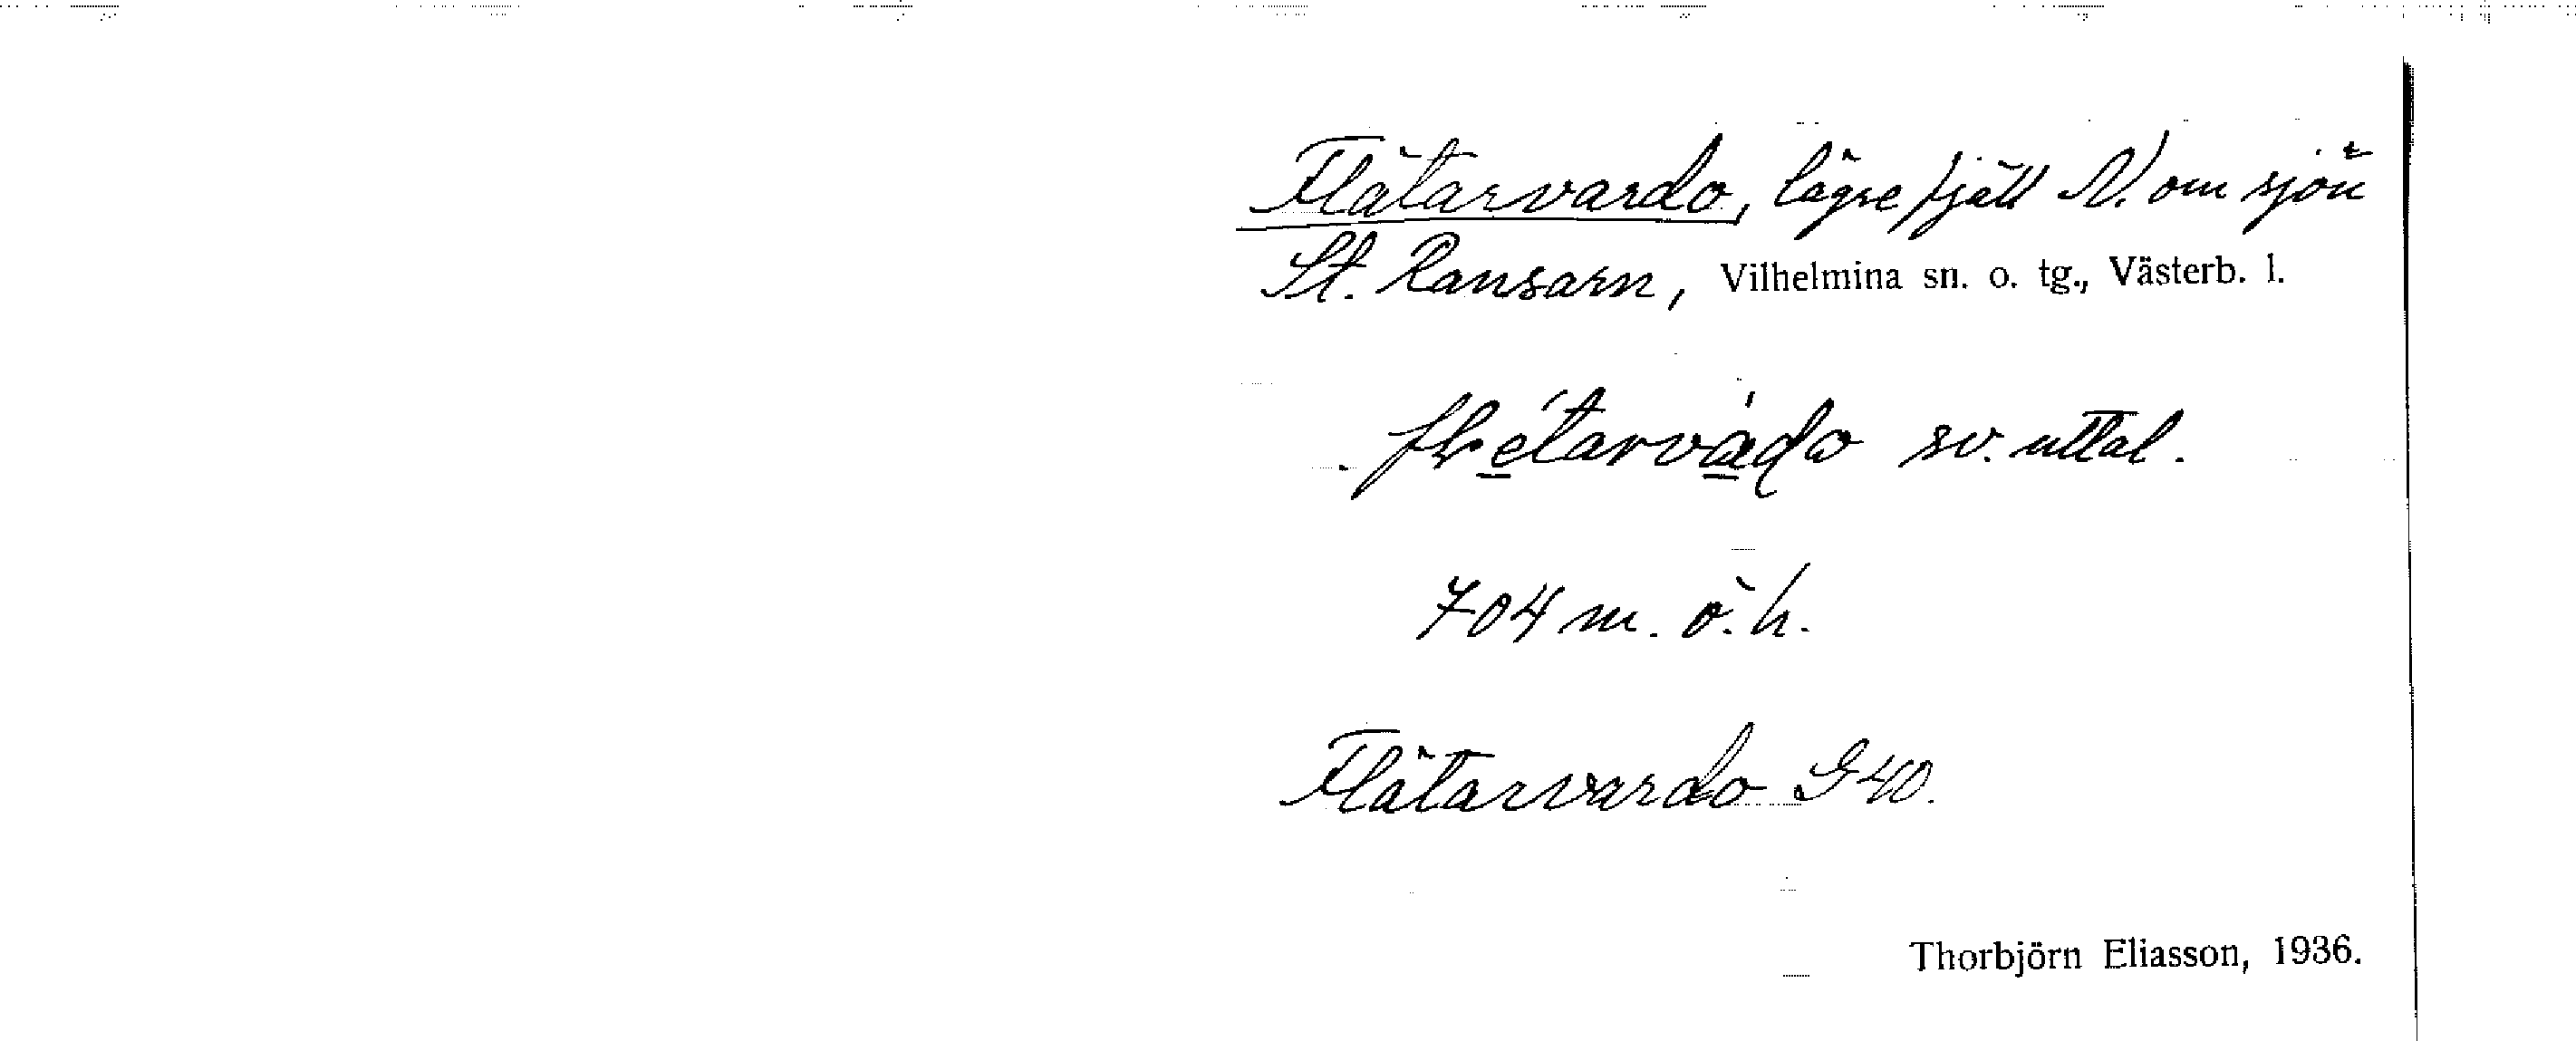 Flätarvardo, lägre fjäll N. om sjön
St. Ransarn, Vilhelmina sn. o. tg., Västerb. l.
flétarvádo sv. uttal.
704 m. ö. h.
Flätarvardo G 40.
Thorbjörn Eliasson, 1936.